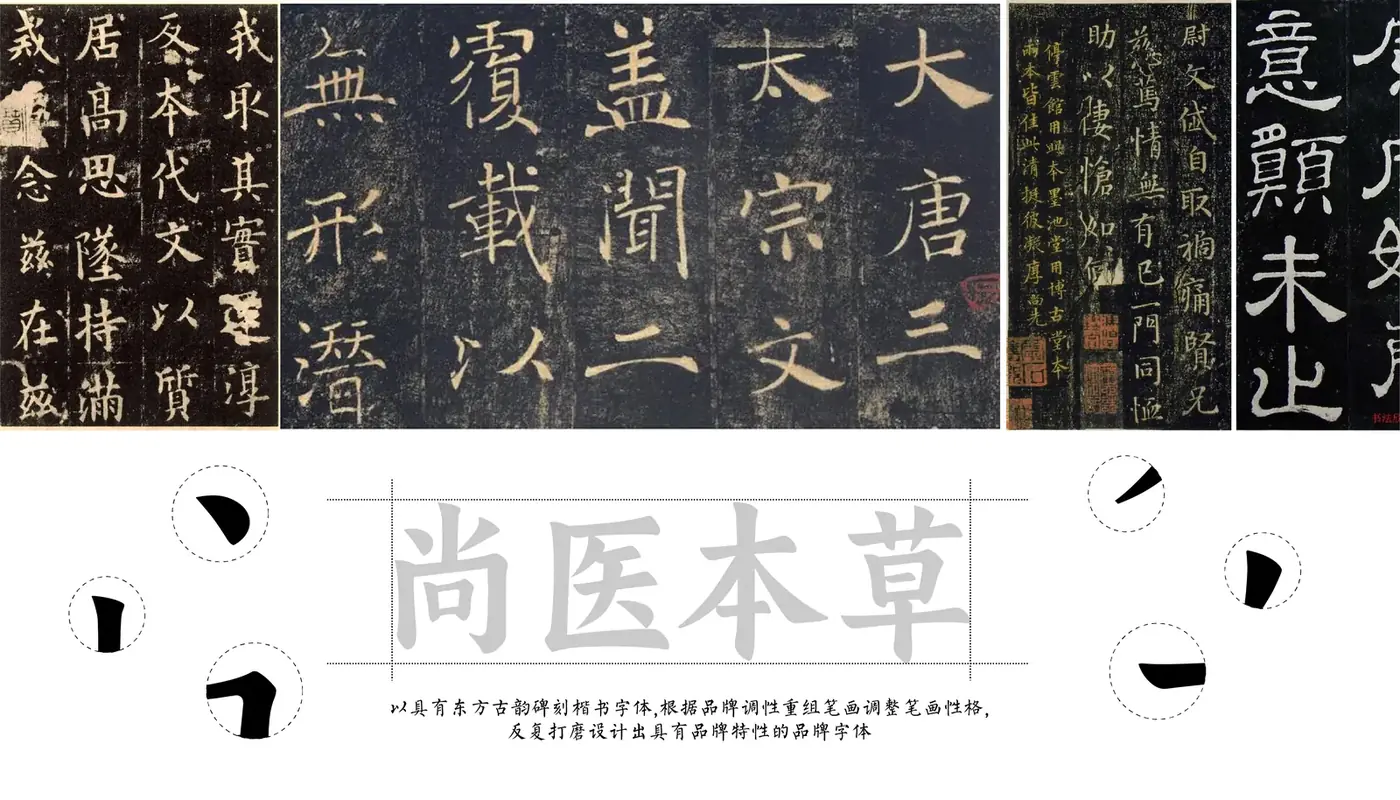 我取其實淳
反本代文以質
居高思墜持滿
戒念兹在兹
大唐三
太宗文
盖聞二
覆載以
無形潛
尉文岱自取禍痛賢兄
慈篤情無有已一門同恤
助以悽愴如何
停雲館用此本墨池堂用博古堂本
本皆佳此清挺彼凝厚
意顛未止
尚医本草
以具有东方古韵碑刻楷书字体,根据品牌调性重组笔画调整笔画性格,
反复打磨设计出具有品牌特性的品牌字体